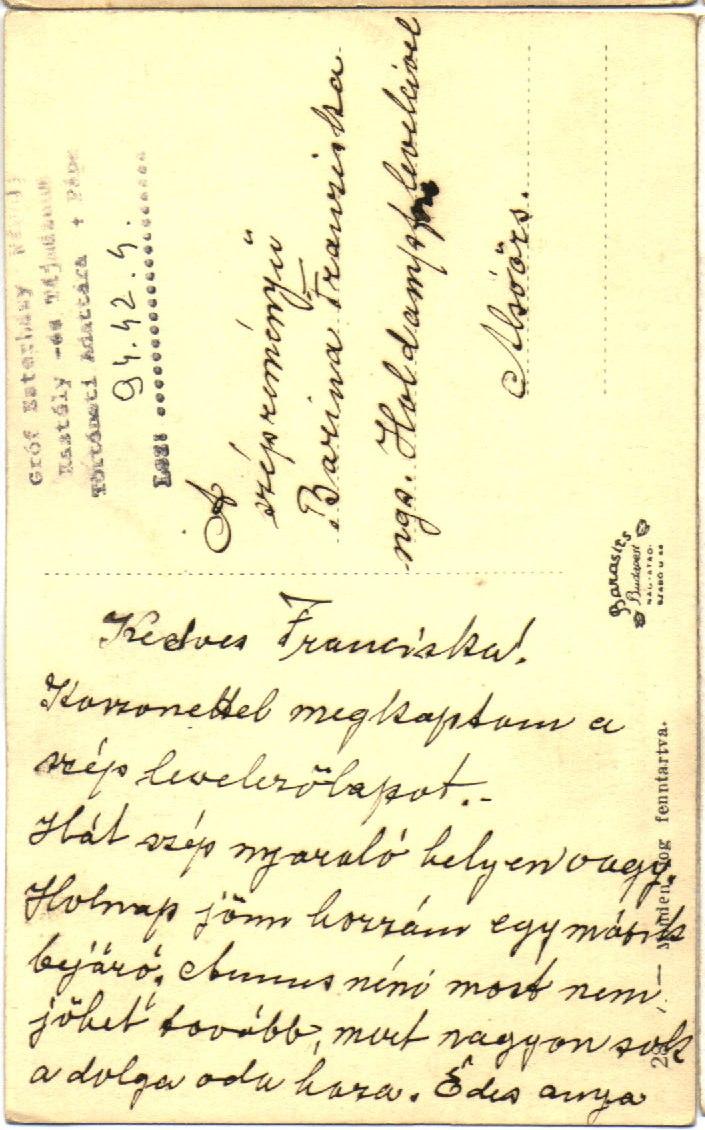 Gróf Esterházy Károly
Kastély -és Tájmúzeum
Történeti Adattára + Pápa
94.42.4.
Lsz:
A
szépreményü
Barina Franziska
ngs. Holdampf levelével
Alsóőrs.
Kedves Franciska!
Köszönettel megkaptam a
szép levelezőlapot.-
Hát szép nyaraló helyen vagy.
Holnap jönn hozzám egy másik
bejáró, Annus néni most nem
jöhet tovább, mert nagyon sok
a dolga oda haza. Édes anya
Barasits
Budapest
Minden jog fenntartva.